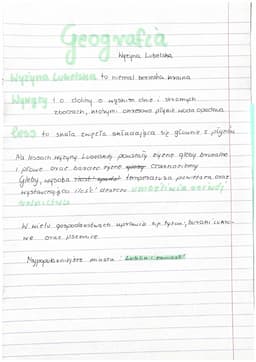 Geografia
Wyżyna Lubelska
Wyżyna Lubelska to niemal bezleśna kraina
Wąwozy to doliny o wąskim dnie i stromych
zboczach, którymi okresowo płynie woda opadowa
less to skała zwięzła składająca się głównie z pyłów
Na lessach wyżyny Lubelskiej powstały żyzne gleby brunatne
i płowe oraz bardzo żyzne czarnoziemy
Gleby, wysoka temperatura powietrza oraz
wystarczająca ilość deszczu umożliwia rozwój
rolnictwa
W wielu gospodarstwach uprawia się tytoń, buraki cukro-
we oraz pszenice
Najpopularniejsze miasta: Lublin i zamość